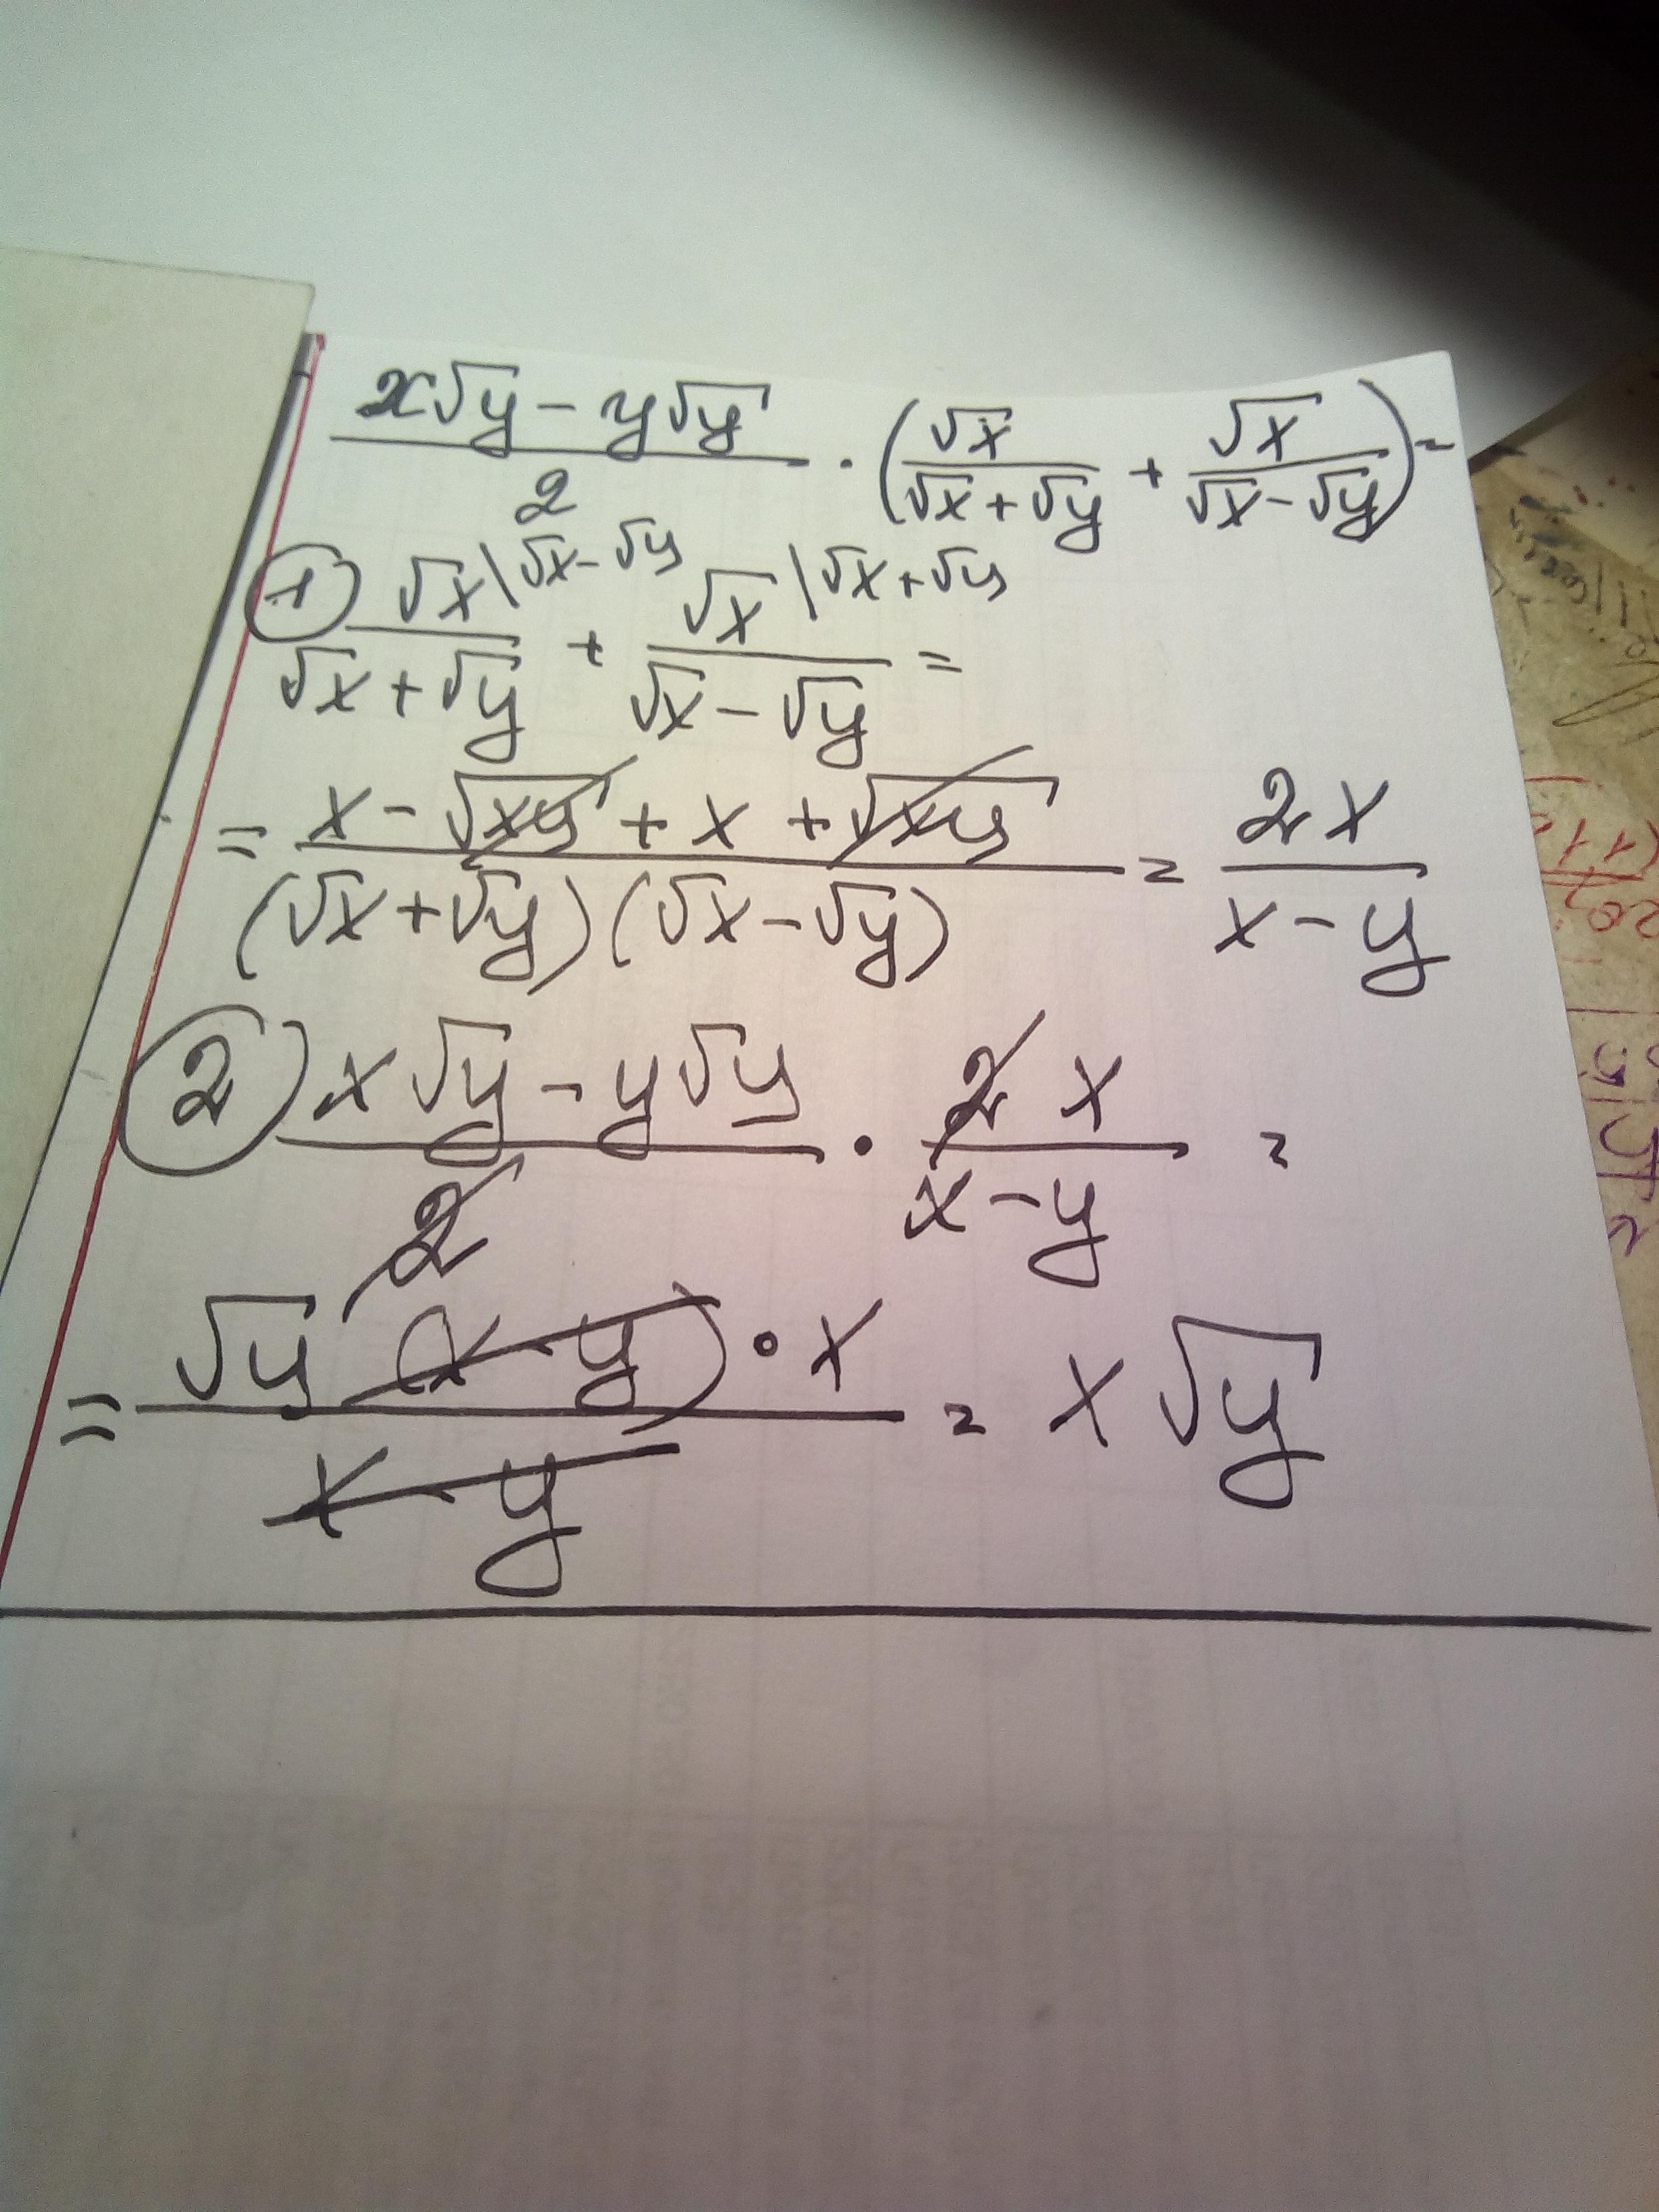 (x√y − y√y)/2 · (√x/(√x+√y) + √x/(√x−√y)) =
1) √x\√x−√y/(√x+√y) + √x\√x+√y/(√x−√y) =
= (x − √xy + x + √xy)/((√x+√y)(√x−√y)) = 2x/(x−y)
2) (x√y − y√y)/2 · 2x/(x−y) =
= (√y(x−y)·x)/(x−y) = x√y